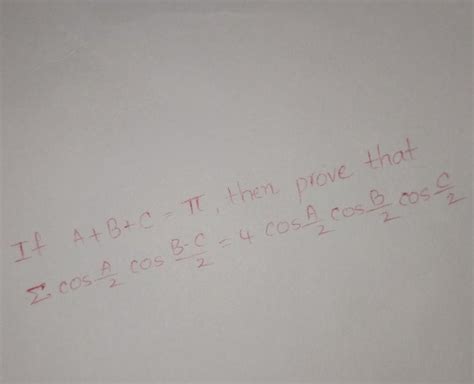 If A+B+C = π, then prove that
Σ cos A/2 cos B-C/2 = 4 cos A/2 cos B/2 cos C/2